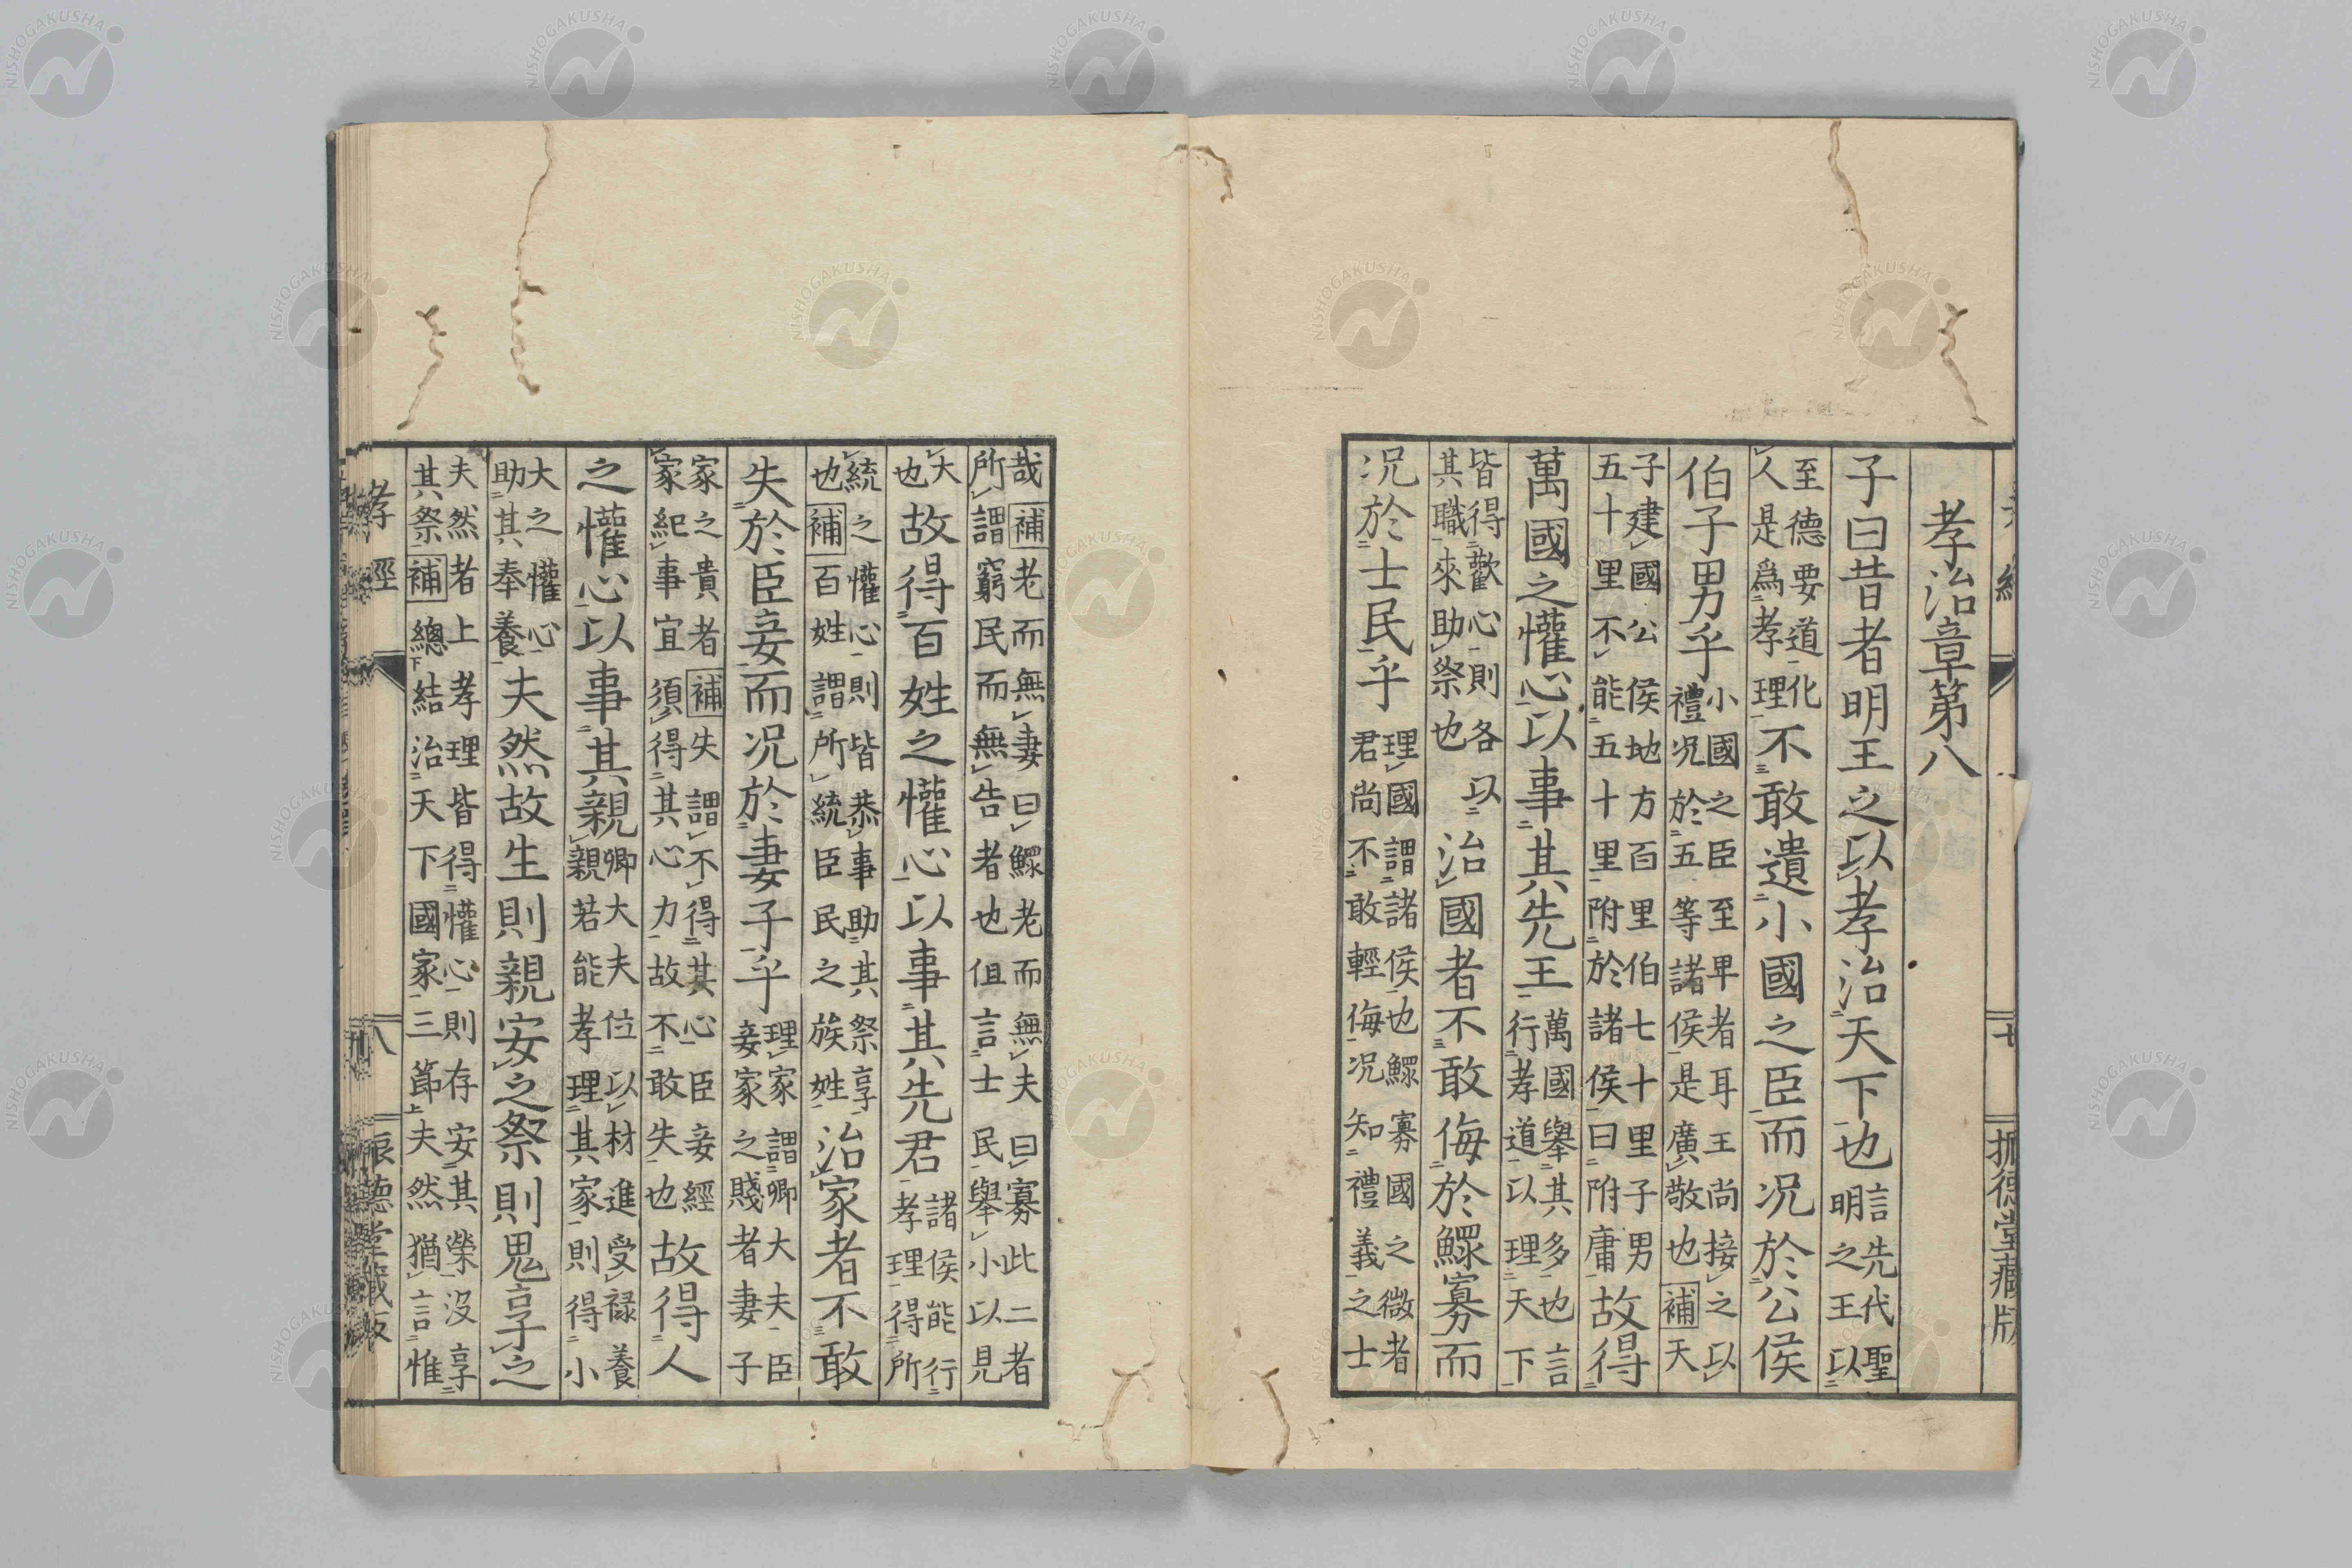 振德堂藏版
孝治章第八
子曰昔者明王之以孝治天下也言先代聖明之王以
至德要道化人是爲孝理不敢遺小國之臣而況於公侯
伯子男乎小國之臣至卑者耳王尚接之以禮況於五等諸侯是廣敬也補天
子建國公侯地方百里伯七十里子男五十里不能五十里附於諸侯曰附庸故得
萬國之懽心以事其先王萬國舉其多也言行孝道以理天下
皆得歡心則各以其職來助祭也治國者不敢侮於鰥寡而
況於士民乎理國謂諸侯也鰥寡國之微者君尚不敢輕侮況知禮義之士
哉補老而無妻曰鰥老而無夫曰寡此二者所謂窮民而無告者也但言士民舉小以見
大也故得百姓之懽心以事其先君諸侯能行孝理得所
統之懽心則皆恭事助其祭享也補百姓謂所統臣民之族姓治家者不敢
失於臣妾而況於妻子乎理家謂卿大夫臣妾家之賤者妻子
家之貴者補失謂不得其心臣妾經家紀事宜須得其心力故不敢失也故得人
之懽心以事其親卿大夫位以材進受祿養親若能孝理其家則得小
大之懽心助其奉養夫然故生則親安之祭則鬼享之
夫然者上孝理皆得懽心則存安其榮沒享其祭補總結治天下國家三節夫然猶言惟
孝經 八